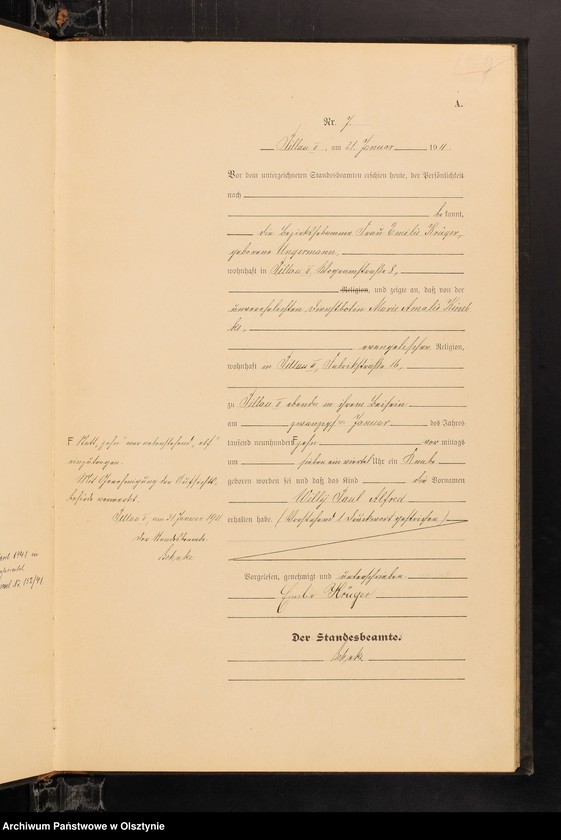 A.
Nr. 7
Pillau II, am 21. Januar 1911.
Vor dem unterzeichneten Standesbeamten erschien heute, der Persönlichkeit
nach
bekannt,
die Bezirkshebamme Frau Emilie Krüger,
geborene Ungermann,
wohnhaft in Pillau II, 8,
Religion, und zeigte an, daß von der
unverehelichten Dienstboten Marie Amalie
evangelischer Religion,
wohnhaft in Pillau II, Fabrikstraße 16,
zu Pillau II ebenda in ihrem Beisein
am zwanzigsten Januar des Jahres
tausend neunhundert F zehn vormittags
um sieben ein viertel Uhr ein Knabe
geboren worden sei und daß das Kind die Vornamen
Willy Paul Alfred
erhalten habe. (Vorstehend 1 Druckwort gestrichen)
F Statt „zehn" war nebenstehend „elf"
einzutragen.
Mit Genehmigung der Aufsichts-
behörde vermerkt.
Pillau II, am 31 Januar 1911
Der Standesbeamte.
Vorgelesen, genehmigt und unterschrieben
Emilie Krüger
Der Standesbeamte.
1941
Nr 152/41
Archiwum Państwowe w Olsztynie